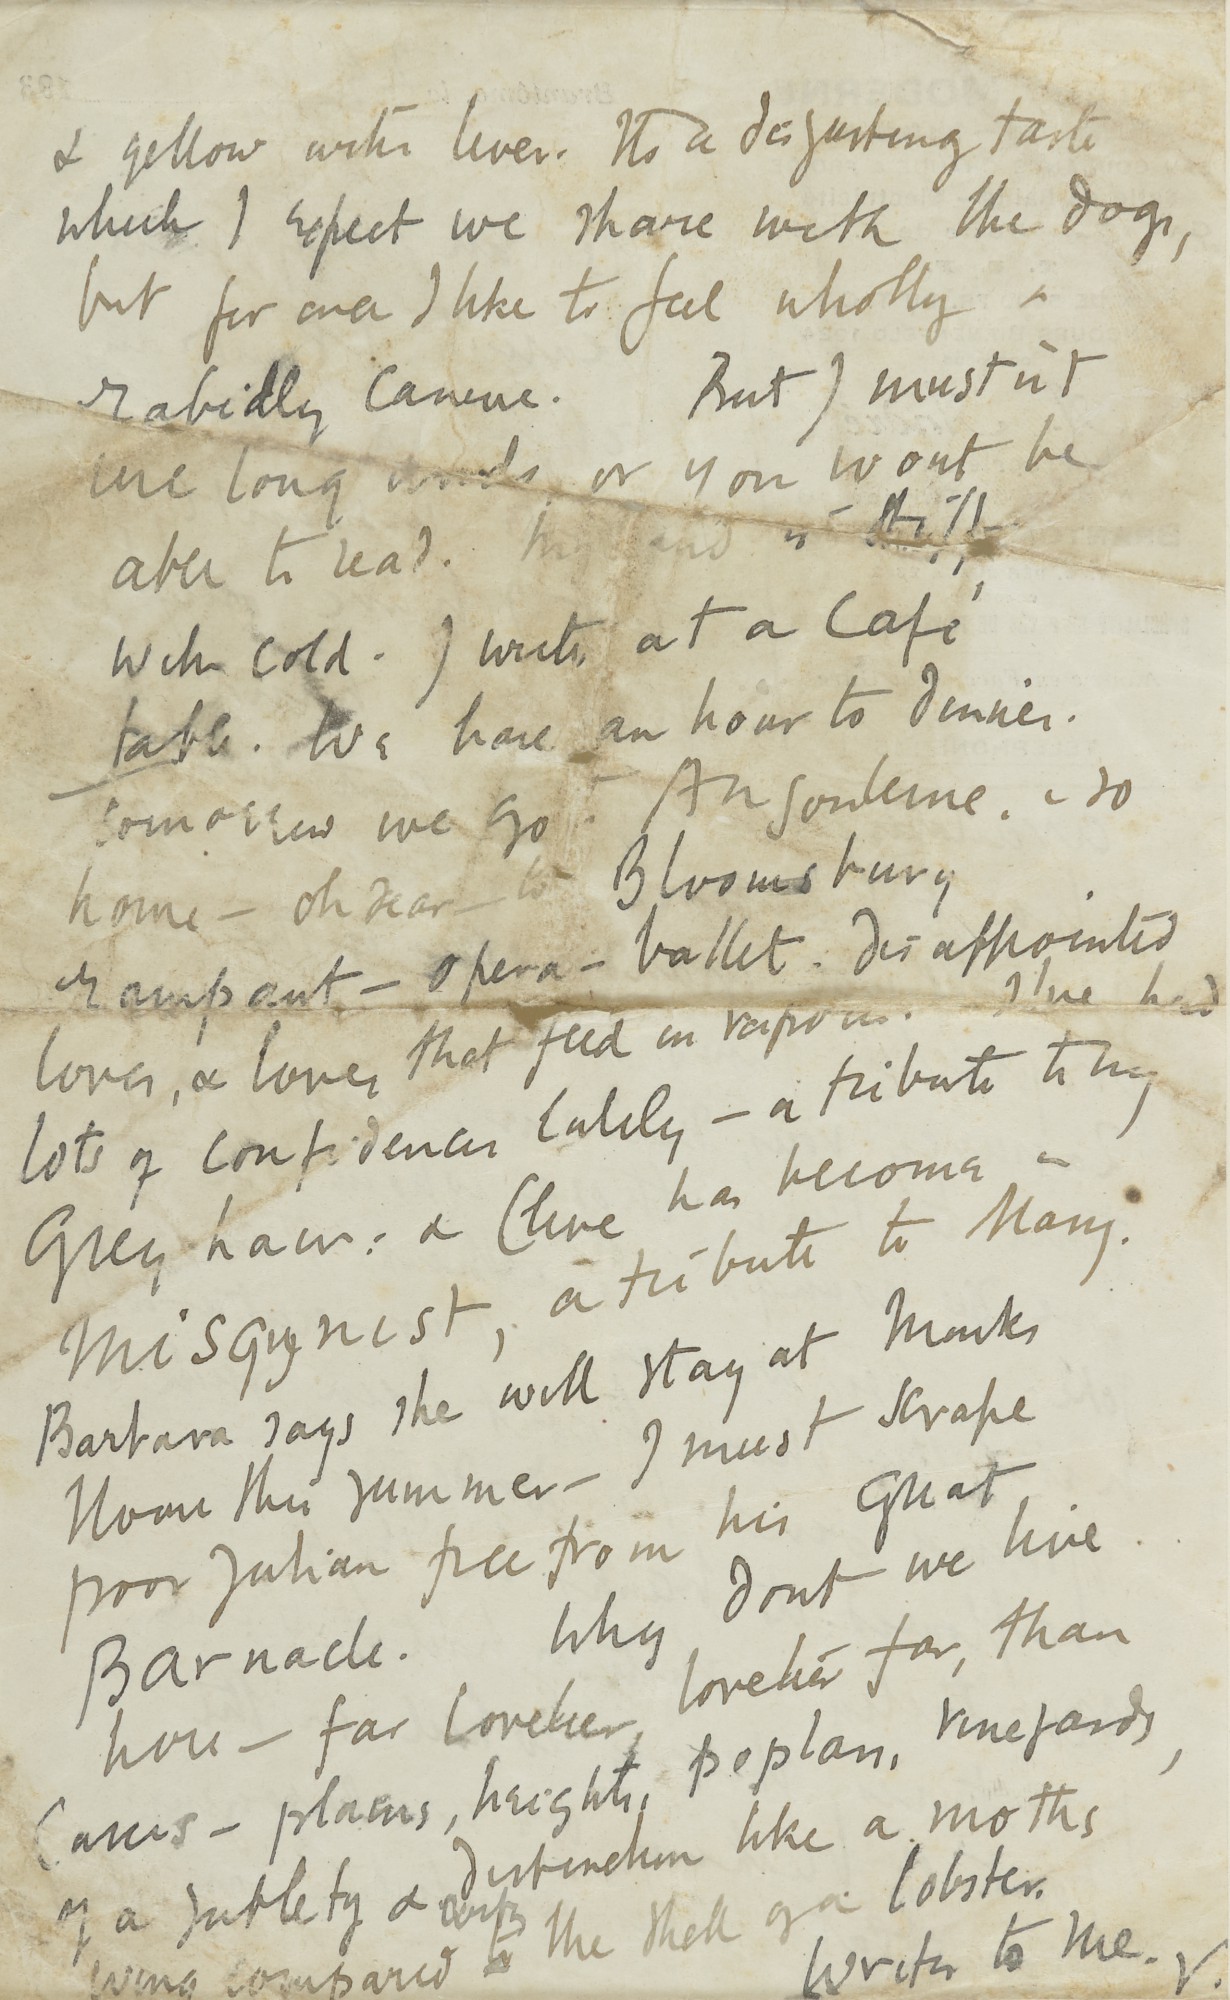 & yellow with liver. Its a disgusting taste
which I expect we share with the dogs,
but for once I like to feel wholly &
rabidly canine. But I mustnt
use long words, or you wont be
able to read. My hand is stiff
with cold. I write at a Café
table. We have an hour to dinner.
Tomorrow we go Angouleme. & so
home — oh dear — to Bloomsbury
rampant — opera — ballet. disappointed
loves, & loves that feed on vapour. I've had
lots of confidences lately — a tribute to my
Grey hairs: & Clive has become a
misogynist, a tribute to Mary.
Barbara says she will stay at Monks
House this summer — I must scrape
poor Julian free from his Great
Barnacle. Why dont we live
here — far lovelier, lovelier far, than
Cassis — plains, heights, poplars, vineyards,
of a subtlety & distinction like a moths
wing compared to the shell of a lobster.
Write to me. V.